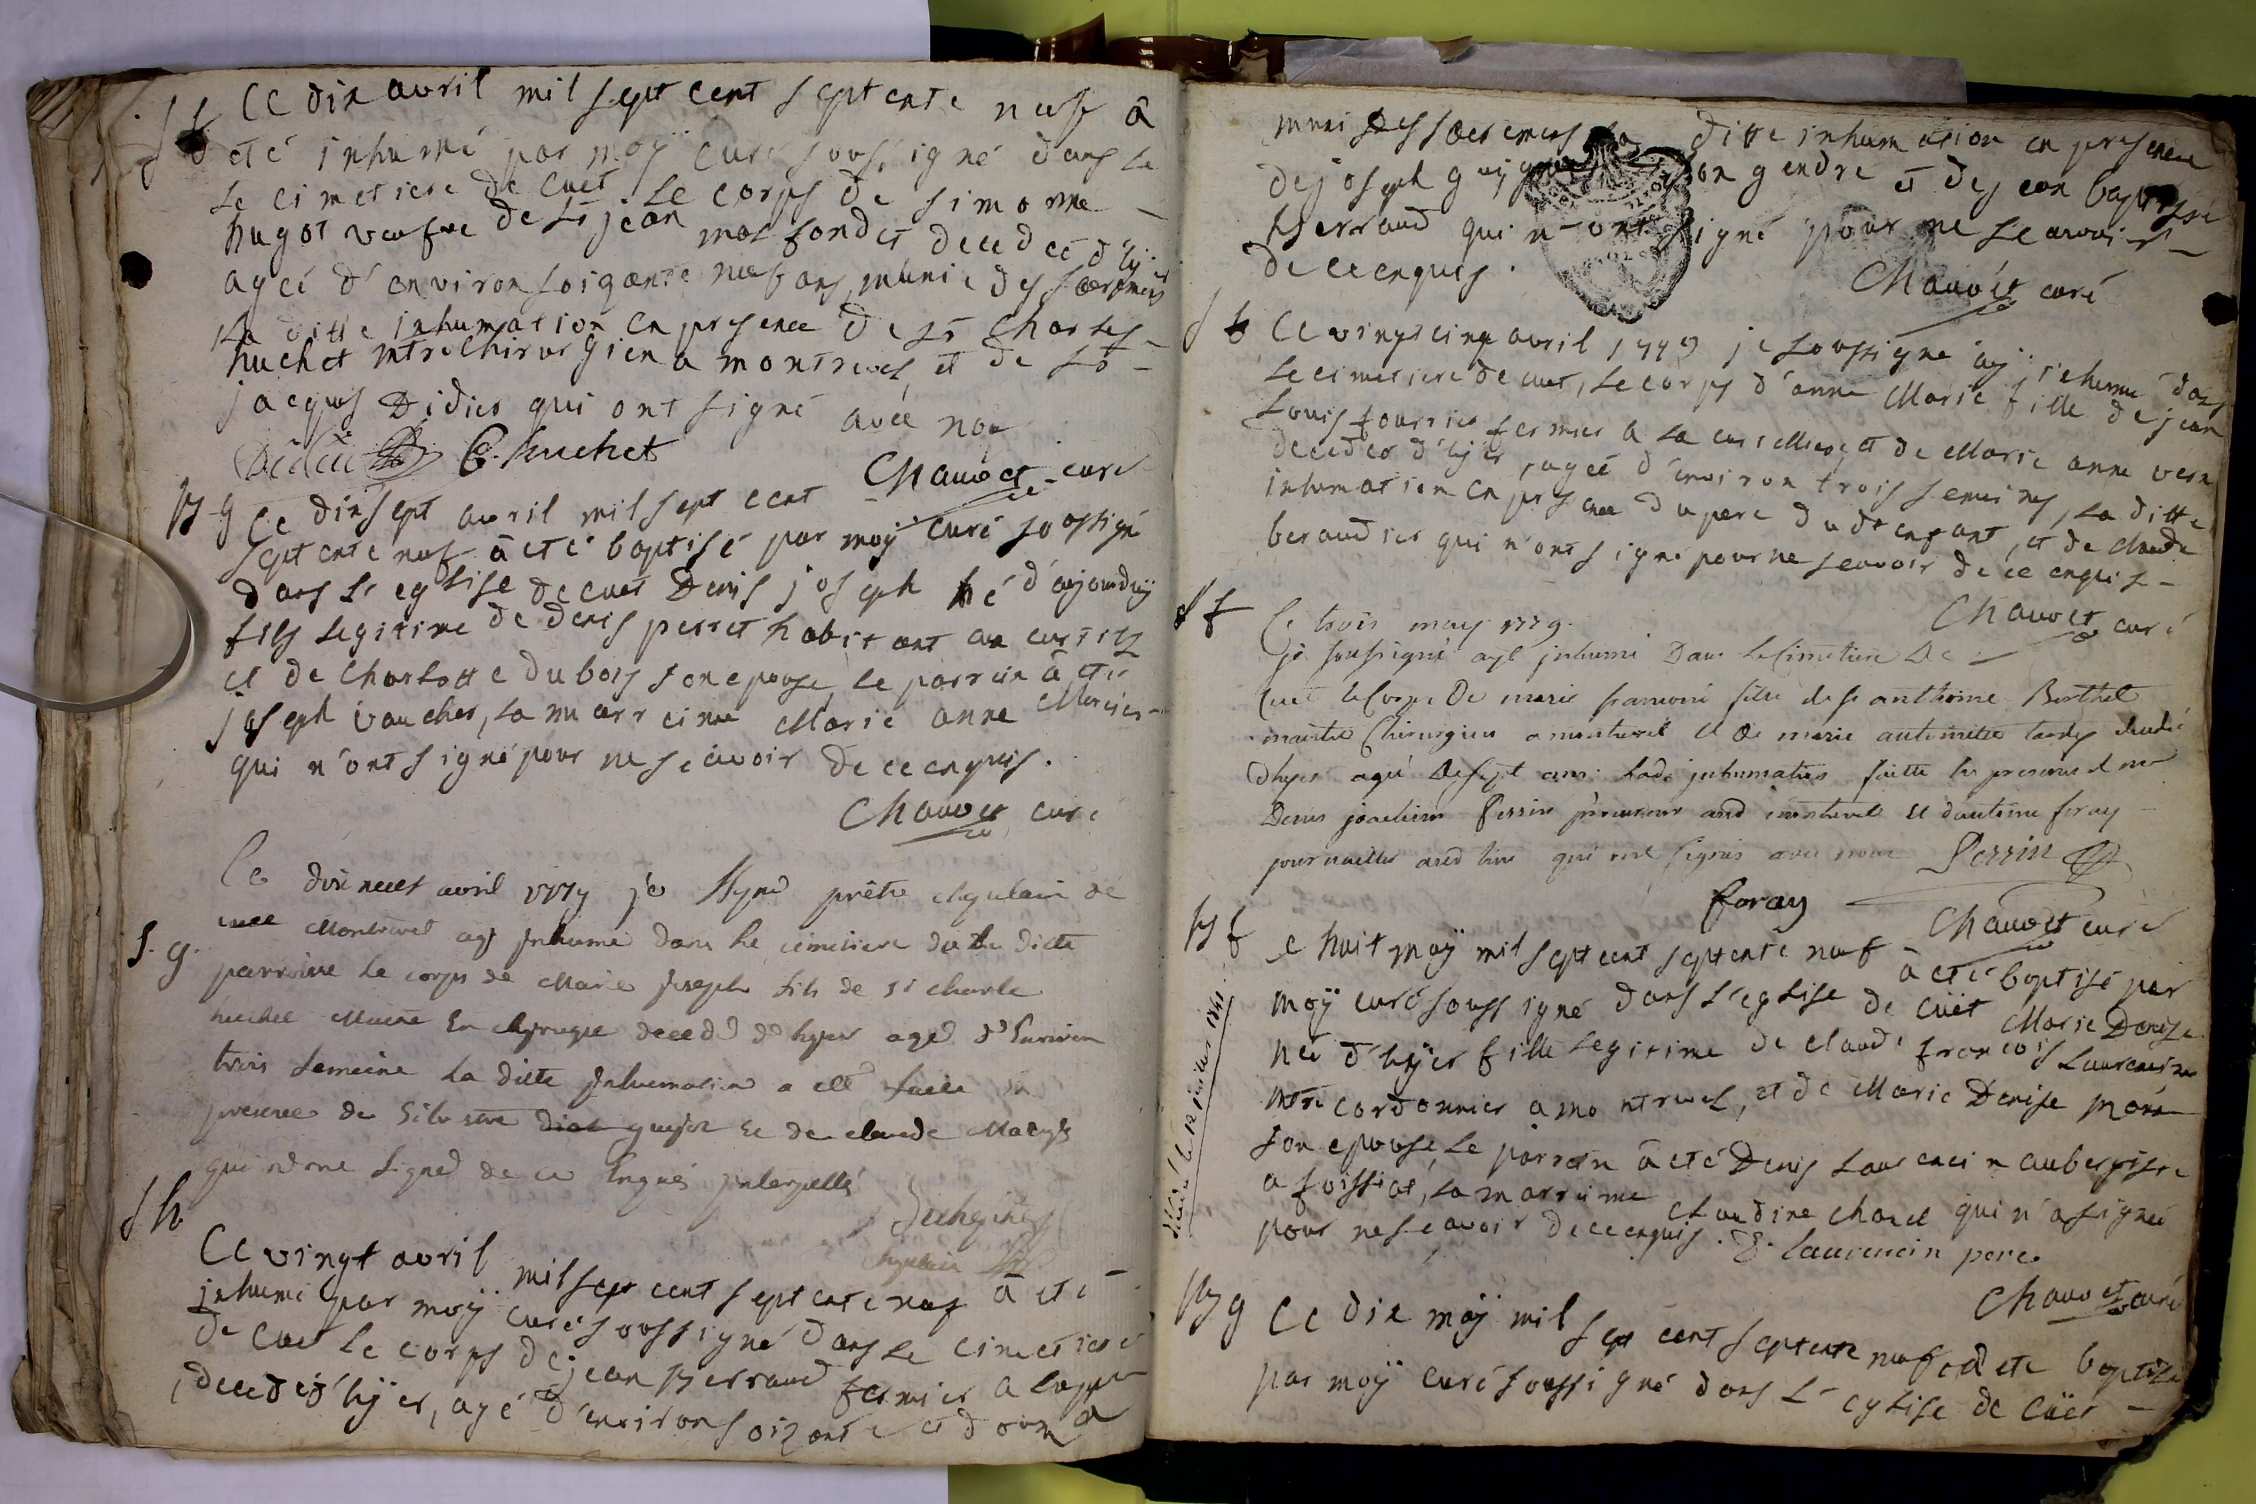 S f Ce dix avril mil sept cent septente neuf â
eté inhumé par moÿ curé soussigné dans le
le cimetiere de cuet le corps de simonne
hugot veufve de sr jean molfond et decedeé d'hÿ
ageé d'environ soizante neuf ans, munie des sacrements
la ditte inhumation en presence de sr Charles
huchet mtre chirurgien a montrevel, et de sr
jacques Didier qui ont signé avec nou
Didier C. huchet
Chauvet curé
B g Ce dixsept avril mil sept cent
septente neuf â eté baptisé par moÿ curé soussigné
dans l'eglise de cuet Denis joseph né d'aujourdhuÿ
fils legitime de denis perret habitant au curtils
et de Charlotte dubois son epouse, le parrein â eté
joseph vaucher, la marreinne Marie anne Mercier
qui n'ont signé pour ne scavoir de ce enquis.
Chauvet curé
Ce dix neuf avril 1779 je signé prêtre chapelain de
Montrevel ay inhumé dans le cimetiere du la ditte
S. g. parroisse le corps de Marie joseph fils de sr charle
huchet Maitre en chyrurgie decedé d'hyer agé d'environ
trois semeine la ditte inhumation a eté faite en
presence de Silvestre guyot et de claude
qui n'ont signé de ce enquis interpellé
S h
Ce vingt avril mil sept cent septente neuf â eté
inhumé par moÿ curé soussigné dans le cimetiere
de cuet le corps de jean perraud fermier a
decedé d'hÿer, agé d'environ soizante et douze a
muni des sacrements la ditte inhumation en presence
de joseph guÿ son gendre et de jean baptiste
perraud qui n'ont signé pour ne scavoir
de ce enquis.
Chauvet curé
S Ce vingt cinq avril 1779 je soussigné aÿ inhumé dans
le cimetiere de cuet, le corps d'anne Marie fille de jean
louis fourrier fermier a la et de Marie anne vern
decedeé d'hÿer, ageé d'environ trois semeines, la ditte
inhumation en presence du pere du dt enfant, et de claude
beraudier qui n'ont signé pour ne scavoir de ce enquis
Chauvet curé
S f Ce trois may 1779.
je soussigné ayt inhumé dans le Cimetiere de
Cuet le Corps de marie francoise fille de sr anthoine Berthet
maitre Chirurgien a montrevel et de marie antoinette tardy decedé
d'hyer agé de sept ans. lade inhumation faitte en presence de mr
Denis joachim Perrin procureur aud montrevel et d'antoine foray
journailler aud lieu qui ont signés avec nous Perrin
foray
Chauvet curé
B f e huit moÿ mil sept cent septente neuf â eté baptisé par
moÿ curé soussigné dans l'eglise de cuët Marie Denise
neé d'hÿer fille legitime de claude francois laurencin
mtre cordonnier a montrevel, et de Marie Denise
son epouse, le parrein â eté Denis laurencin aubergiste
a foissiat, la marreinne claudine charel qui n'a signeé
pour ne scavoir de ce enquis. laurencin pere
Chauvet curé
B g Ce dix moÿ mil sept cent septente neuf â eté baptisé
par moÿ curé soussigné dans l'eglise de cüet